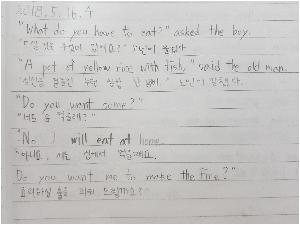 2018. 5. 16. 수
"What do you have to eat?" asked the boy.
소년이 물었다
"A pot of yellow rice with fish," said the old man.
노인이 말했다.
"Do you want some?"
"너도 좀 먹을래?"
"No. I will eat at home.
"아니요. 저는 집에서 먹을게요.
Do you want me to make the fire?"
불을 피워 드릴까요?"